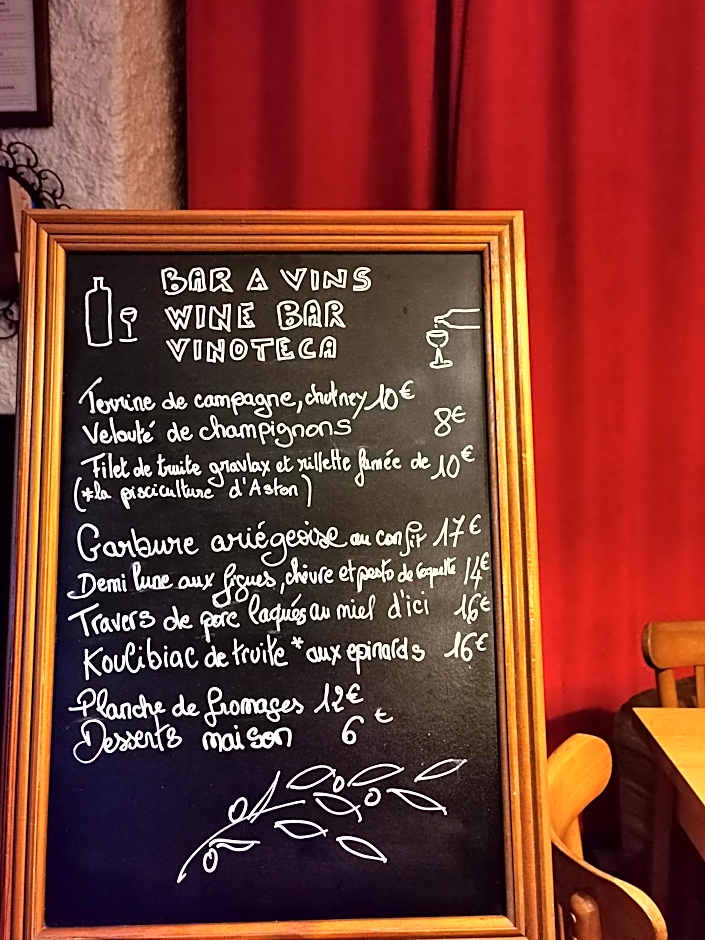 BAR A VINS
WINE BAR
VINOTECA
Terrine de campagne, chutney 10€
Velouté de champignons 8€
Filet de truite gravlax et rillette fumée de 10€
(*la pisciculture d'Aston)
Garbure ariégeoise au confit 17€
Demi lune aux figues, chèvre et pesto de roquette 14€
Travers de porc laqués au miel d'ici 16€
Koulibiac de truite * aux epinards 16€
Planche de fromages 12€
Desserts maison 6€